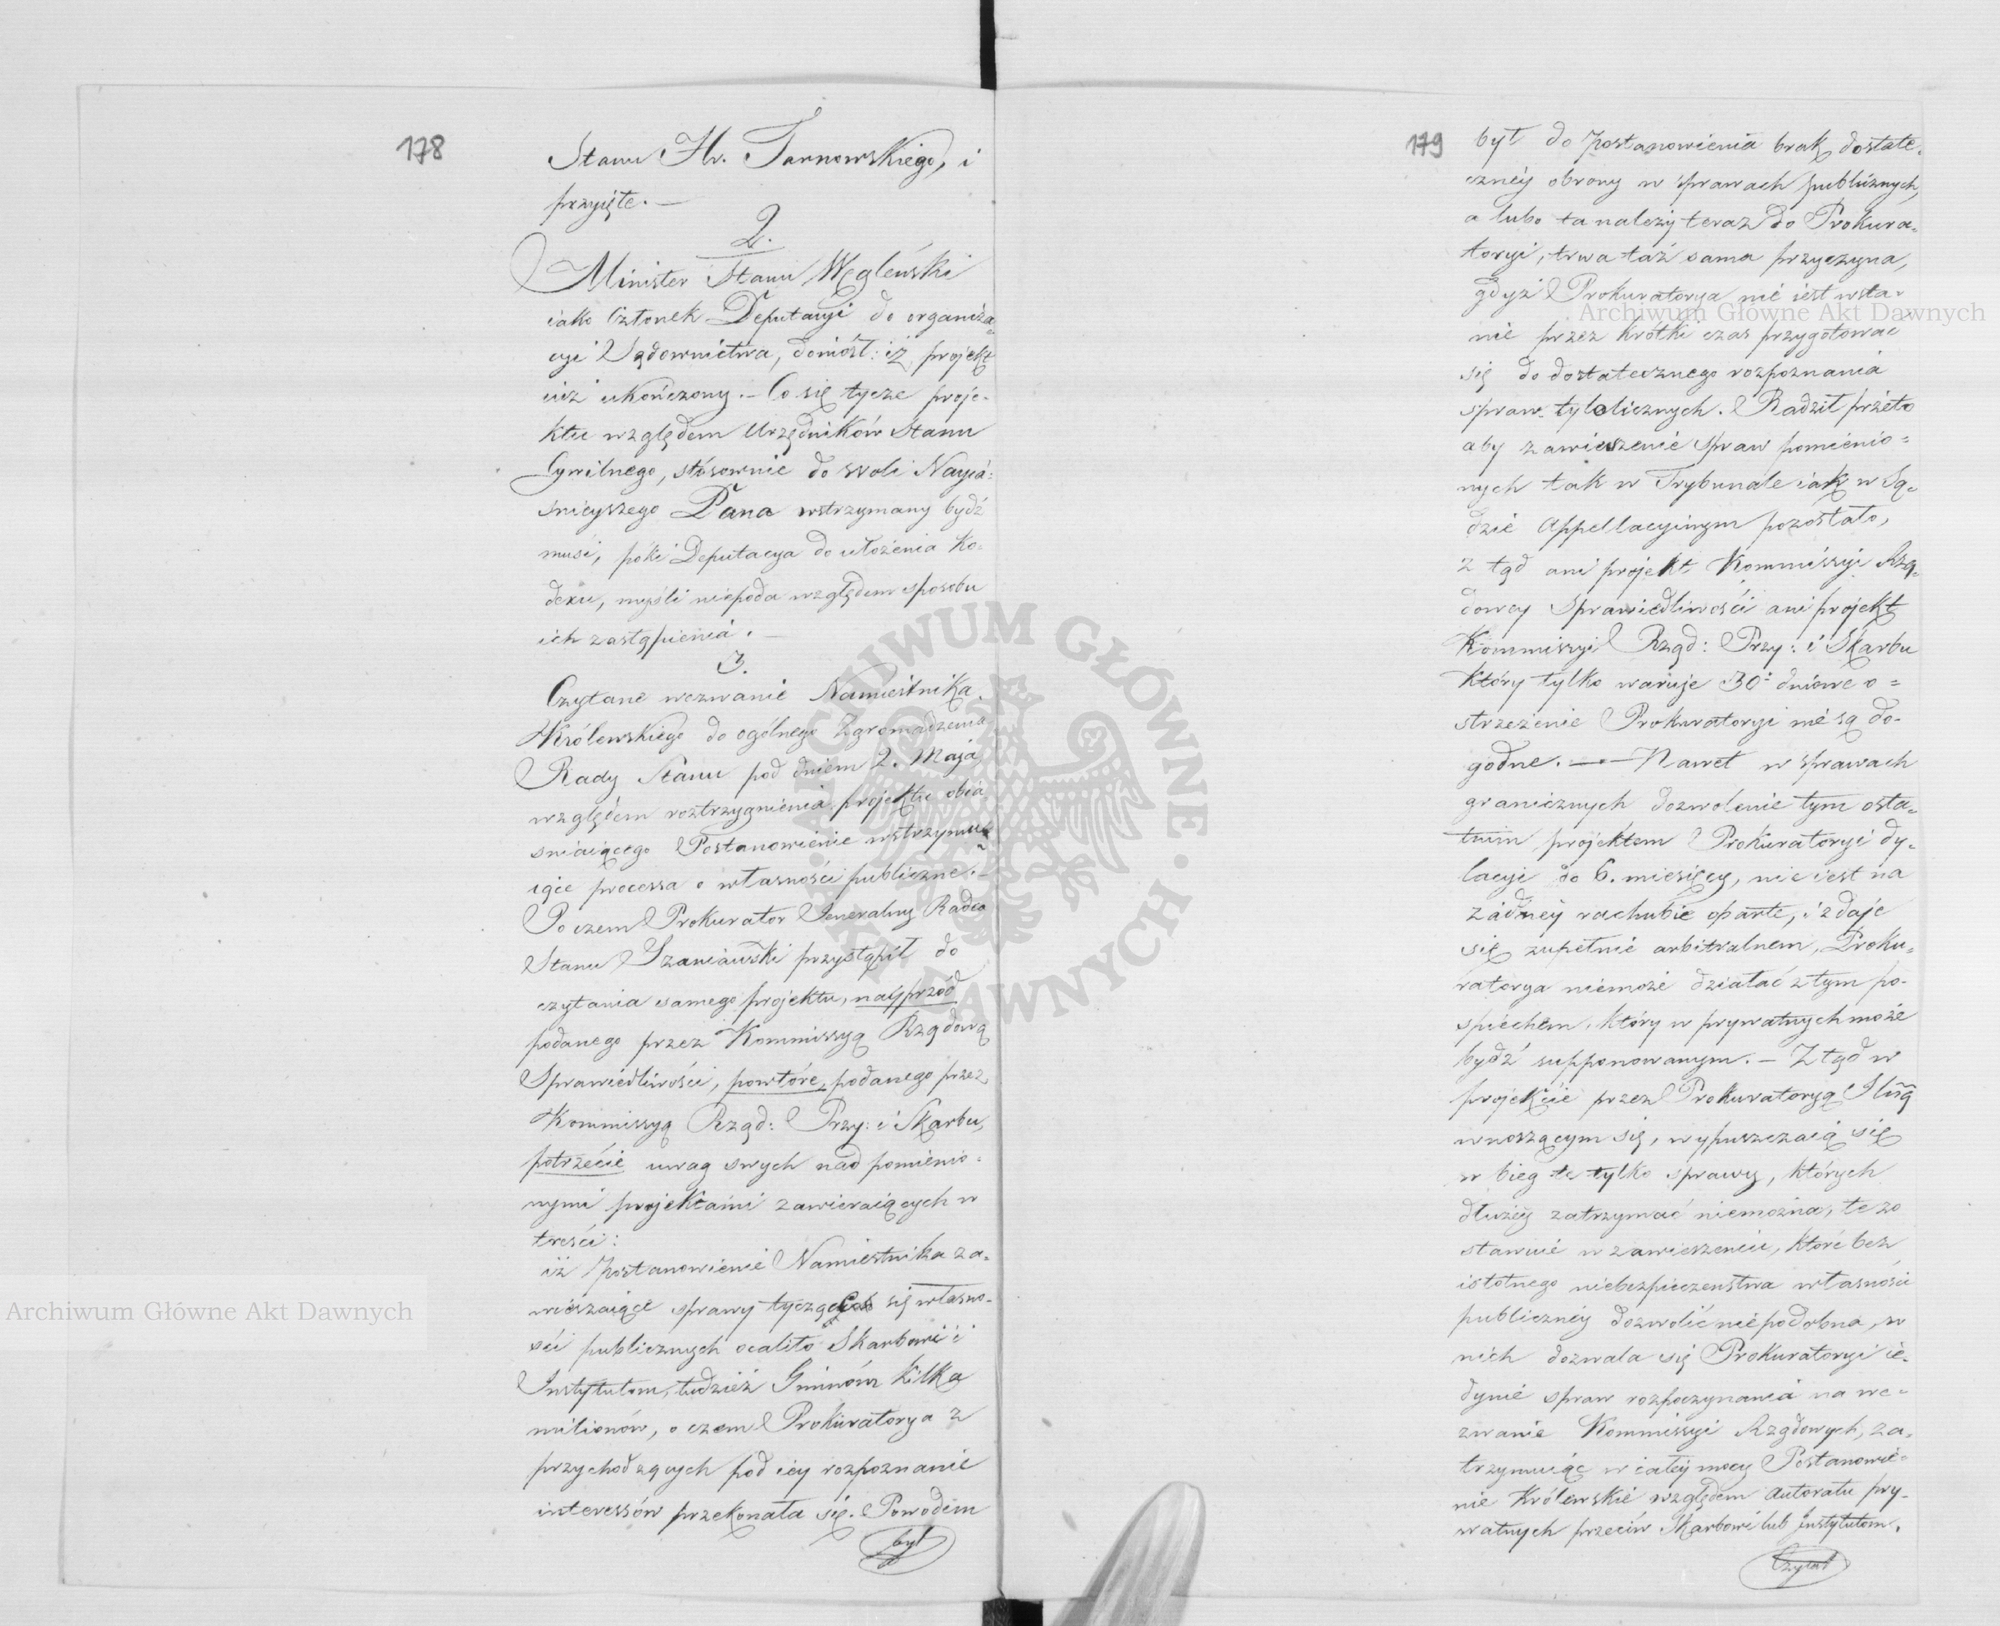 178
Stanu Hr. Tarnowskiego, i
przyięte. —
2.
Minister Stanu Węgleński
iako Członek Deputacyi do organiza=
cyi Sądownictwa, doniósł: iż projekt
iuż ukończony. — Co się tycze proje-
ktu względem Urzędników Stanu
Cywilnego, stósownie do woli Nayia=
śnieyszego Pana wstrzymany bydź
musi, póki Deputacya do ułożenia Ko-
dexu, myśli niepoda względem sposobu
ich zastąpienia. —
3.
Czytane wezwanie Namiestnika
Królewskiego do ogólnego Zgromadzenia
Rady Stanu pod dniem 2. Maja
względem roztrzygnienia projektu obia
śniaiącego Postanowienie wstrzymu=
iące processa o własności publiczne. —
Poczem Prokurator Jeneralny Radca
Stanu Szaniawski przystąpił do
czytania samego projektu, nayprzód
podanego przez Kommissyą Rządową
Sprawiedliwości, powtóre, podanego przez
Kommissyą Rząd: Przy: i Skarbu,
potrzecie uwag swych nad pomienio-
nymi projektami zawieraiących w
treści:
iż postanowienie Namiestnika za-
wieszaiące sprawy tyczące się własno-
ści publicznych ocaliło Skarbowi i
Instytutom, tudzież Gminóm kilka
milionów, o czem Prokuratorya z
przychodzących pod iey rozpoznanie
interessów przekonała się. Powodem
był
179
był do postanowienia brak dostate-
czney obrony w sprawach publicznych,
a lubo ta należy teraz do Prokura=
toryi, trwa taż sama przyczyna,
gdyż Prokuratorya nie iest wsta-
nie przez krótki czas przygotować
się do dostatecznego rozpoznania
spraw tylolicznych. Radził przeto
aby zawieszenie spraw pomienio=
nych tak w Trybunale iak w Są-
dzie Appellacyinym pozostało,
z tąd ani projekt Kommissyi Rzą-
dowey Sprawiedliwości ani projekt
Kommissyi Rząd: Przy: i Skarbu
który tylko waruje 30. dniowe o=
strzeżenie Prokuratoryi nie są do-
godne. —— Nawet w sprawach
granicznych dozwolenie tym osta-
tnim projektem Prokuratoryi dy-
lacyi do 6. miesięcy, nie iest na
żadney rachubie oparte, i zdaje
się zupełnie arbitralnem, Proku-
ratorya niemoże działać z tym po-
śpiechem, który w prywatnych może
bydź supponowanym. — Z tąd w
projekcie przez Prokuratoryą
wnoszącym się, wypuszczaią się
w bieg te tylko sprawy, których
dłużey zatrzymać niemożna, te zo
stawuie w zawieszeniu, które bez
istotnego niebezpieczenstwa własności
publiczney dozwolić niepodobna, w
nich dozwala się Prokuratoryi ie-
dynie spraw rozpoczynania na we-
zwanie Kommissyi Rządowych, za-
trzymuiąc w całey mocy Postanowie-
nie Królewskie względem autoratu pry-
watnych przeciw Skarbowi lub Instytutom.
Czytał
Archiwum Główne Akt Dawnych
Archiwum Główne Akt Dawnych
ARCHIWUM GŁÓWNE · AKT DAWNYCH ·